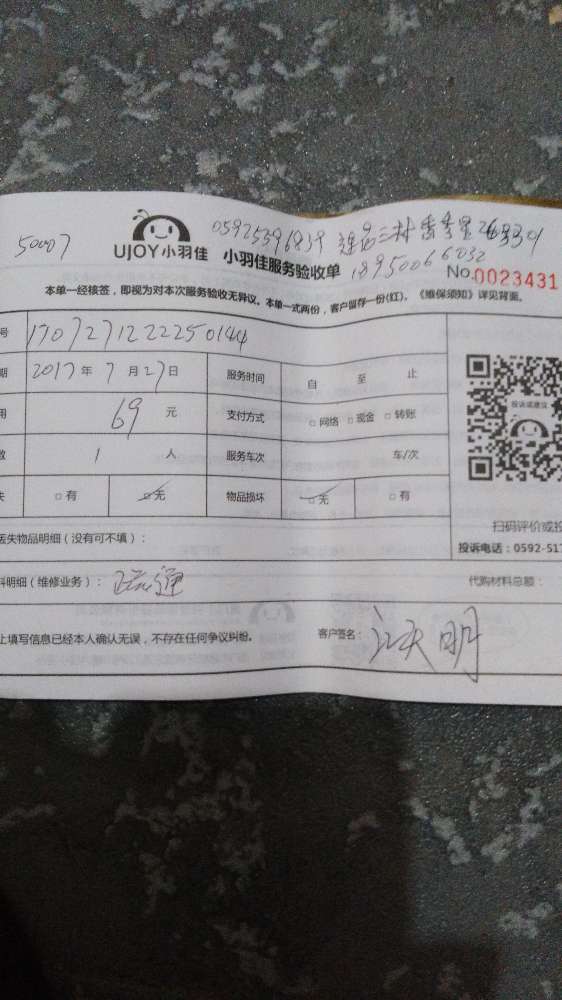 50007
UJOY小羽佳 小羽佳服务验收单
18950066032
No.0023431
本单一经核签，即视为对本次服务验收无异议。本单一式两份，客户留存一份(红)。《维保须知》详见背面。
号 170727122250144
期 2017年7月27日 服务时间 自 至 止
用 69 元 支付方式 □网络 □现金 □转账
数 1 人 服务车次 车/次
失 □有 □无 物品损坏 □无 □有
投诉或建议
扫码评价或投
投诉电话：0592-517
丢失物品明细（没有可不填）：
料明细（维修业务）： 疏通 代购材料总额：
上填写信息已经本人确认无误，不存在任何争议纠纷。 客户签名： 江天明